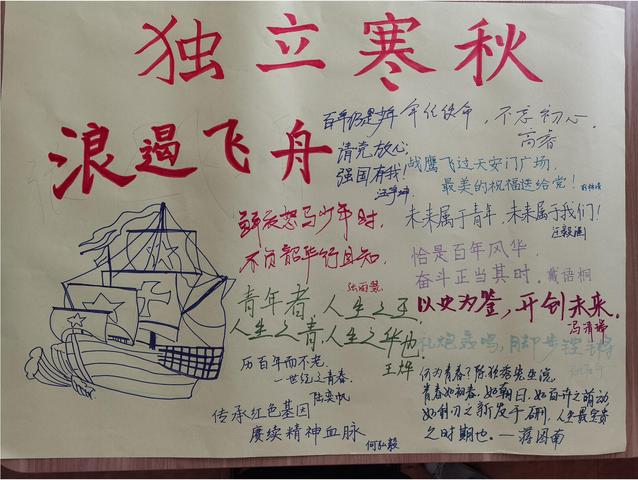 独立寒秋
浪遏飞舟
百年仍是少年
牢记使命，不忘初心。
高春
请党放心
强国有我！
战鹰飞过天安门广场，
最美的祝福送给党！
未来属于青年，未来属于我们！
鲜衣怒马少年时，
不负韶华行且知。
张雨慧
恰是百年风华，
奋斗正当其时。戴语桐
以史为鉴，开创未来。
青年者，人生之王，
人生之青，人生之华也。
王烨
历百年而不老
一世纪之青春.
传承红色基因
赓续精神血脉
何弘毅
何为青春？陈独秀先生说，
青春如初春，如朝日，如百卉之萌动
如利刃之新发于硎，人生最宝贵
之时期也。——蒋图南